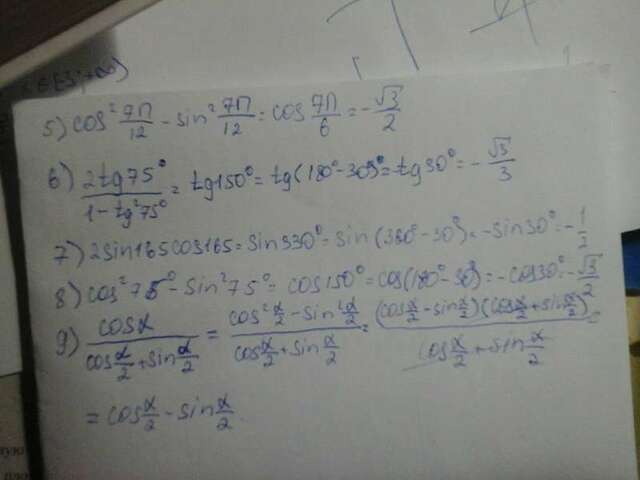 ∈(3;+∞)
5) cos² 7П/12 - sin² 7П/12 = cos 7П/6 = -√3/2
6) 2tg75°/(1-tg²75°) = tg150° = tg(180°-30°) = tg30° = -√3/3
7) 2sin165cos165 = sin330° = sin(360°-30°) = -sin30° = -1/2
8) cos²75° - sin²75° = cos150° = cos(180°-30°) = -cos30° = -√3/2
9) cosα/(cos α/2 + sin α/2) = (cos² α/2 - sin² α/2)/(cos α/2 + sin α/2) = (cos α/2 - sin α/2)(cos α/2 + sin α/2)/(cos α/2 + sin α/2) =
= cos α/2 - sin α/2